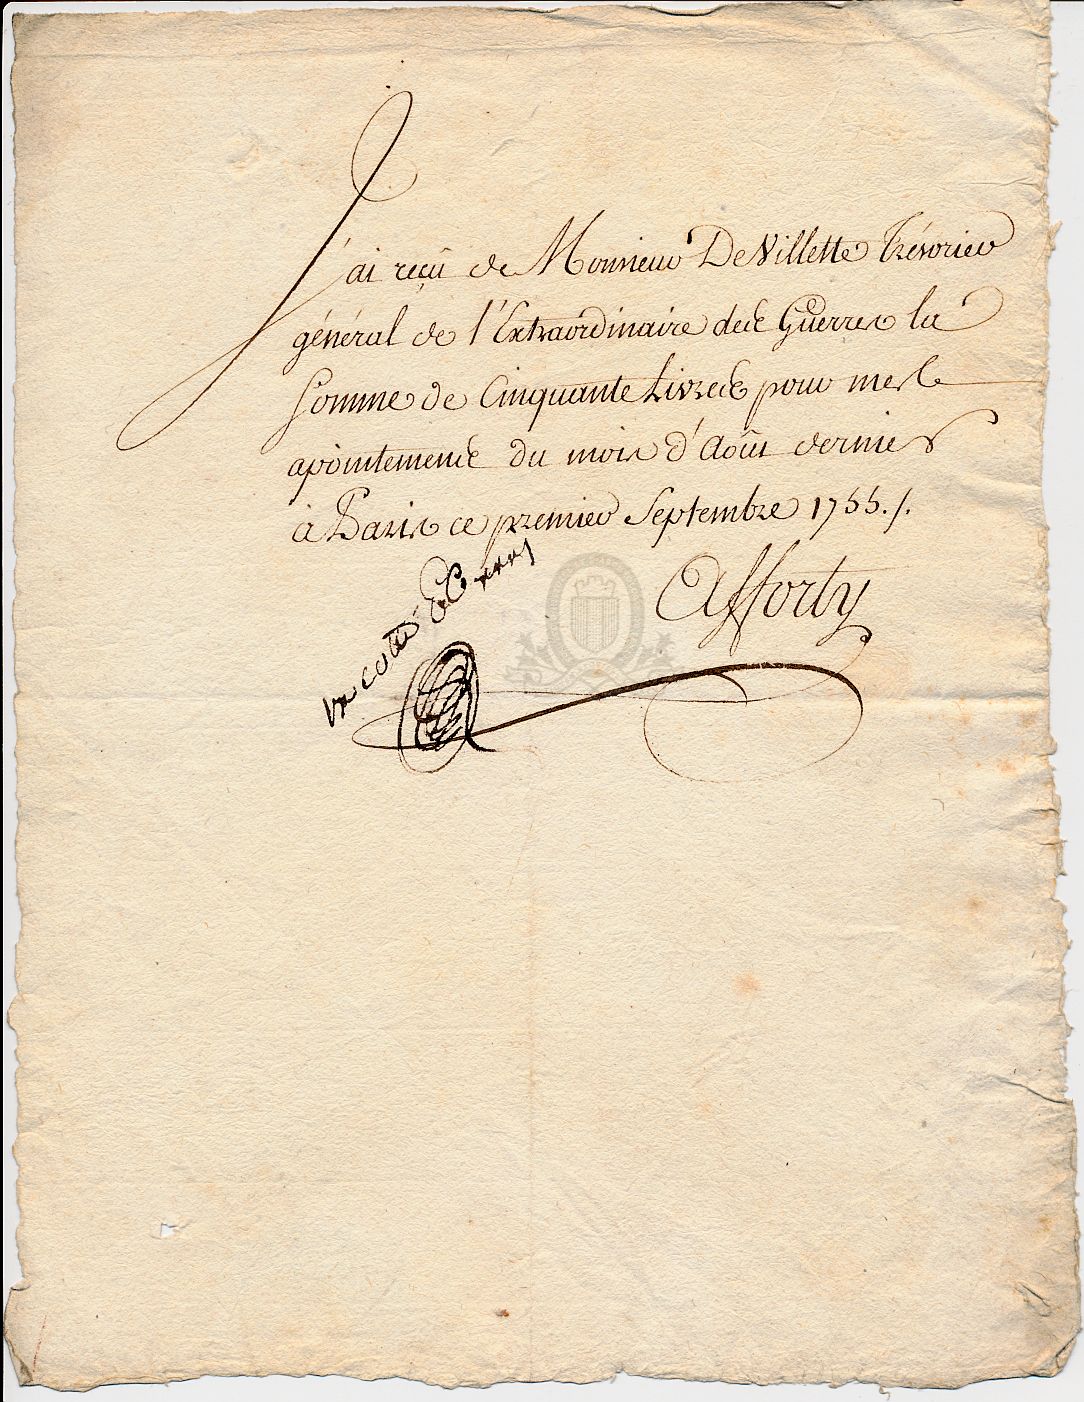 J'ai reçu de Monsieur De Villette Trésorier
général de l'Extraordinaire des Guerres la
Somme de Cinquante Livres pour mes
apointements du mois d'Août dernier
à Paris ce premier Septembre 1755./.
Afforty